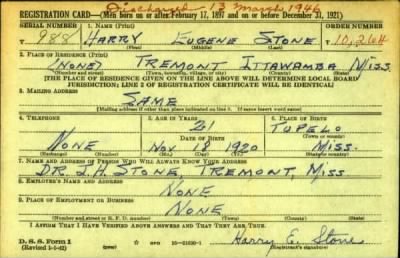 Discharged 13 March 1946
REGISTRATION CARD—(Men born on or after February 17, 1897 and on or before December 31, 1921)
SERIAL NUMBER 1. NAME (Print) ORDER NUMBER
988 HARRY EUGENE STONE 10,264
(First) (Middle) (Last)
2. PLACE OF RESIDENCE (Print)
(NONE) TREMONT ITTAWAMBA MISS.
(Number and street) (Town, township, village, or city) (County) (State)
[THE PLACE OF RESIDENCE GIVEN ON THE LINE ABOVE WILL DETERMINE LOCAL BOARD
JURISDICTION; LINE 2 OF REGISTRATION CERTIFICATE WILL BE IDENTICAL]
3. MAILING ADDRESS
SAME
[Mailing address if other than place indicated on line 2. If same insert word same]
4. TELEPHONE 5. AGE IN YEARS 6. PLACE OF BIRTH
21 TUPELO
DATE OF BIRTH (Town or county)
NONE NOV 18 1920 MISS.
(Exchange) (Number) (Mo.) (Day) (Yr.) (State or country)
7. NAME AND ADDRESS OF PERSON WHO WILL ALWAYS KNOW YOUR ADDRESS
DR. I. H. STONE, TREMONT, MISS
8. EMPLOYER'S NAME AND ADDRESS
NONE
9. PLACE OF EMPLOYMENT OR BUSINESS
NONE
(Number and street or R. F. D. number) (Town) (County) (State)
I AFFIRM THAT I HAVE VERIFIED ABOVE ANSWERS AND THAT THEY ARE TRUE.
D. S. S. Form 1 Harry E. Stone
(Revised 1-5-42) GPO 16—21630-1 (Registrant's signature)